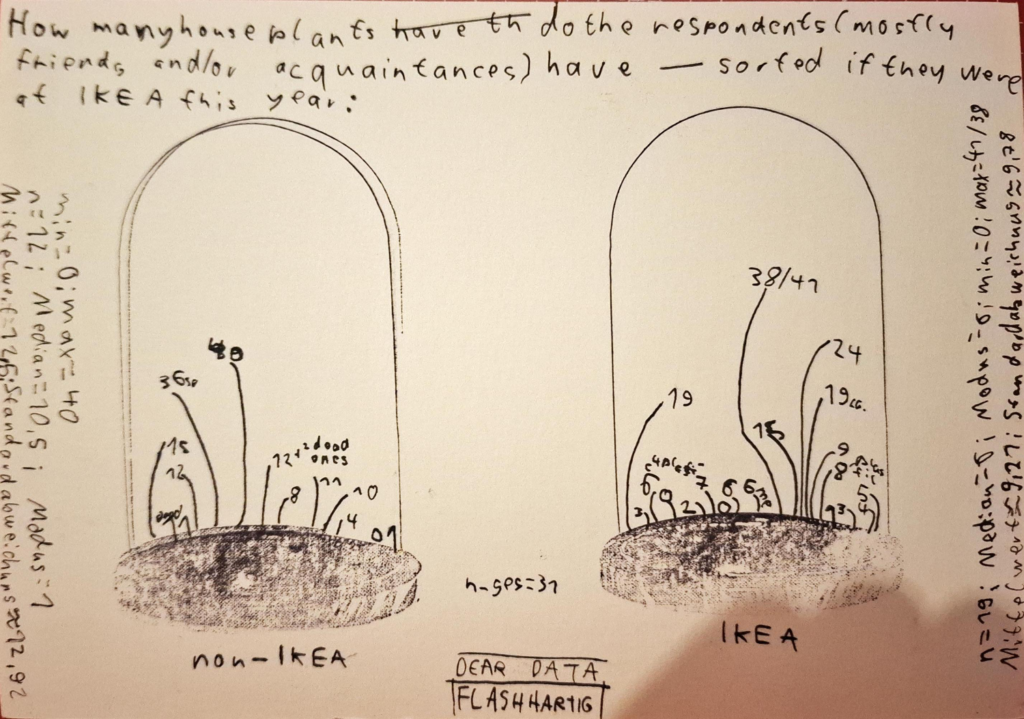 How many houseplants have th do the respondents (mostly
friends and/or acquaintances) have — sorted if they were
at IKEA this year:
min=0; max=40
n=12; Median=10,5; Modus=1
Standardabweichung≈12,92
15
12
36
40
12 +2 dead
ones
8
11
10
4
0 1
non-IKEA
n-ges=31
38/41
19
24
19 ca.
15
9
8
6
4 Plastik
0
3
2
7
0
6
6 me
3
5
IKEA
n=19; Median=6; Modus=6; min=0; max=41/38
Mittelwert≈9,27; Standardabweichung≈9,78
DEAR DATA
FLASHHARTIG